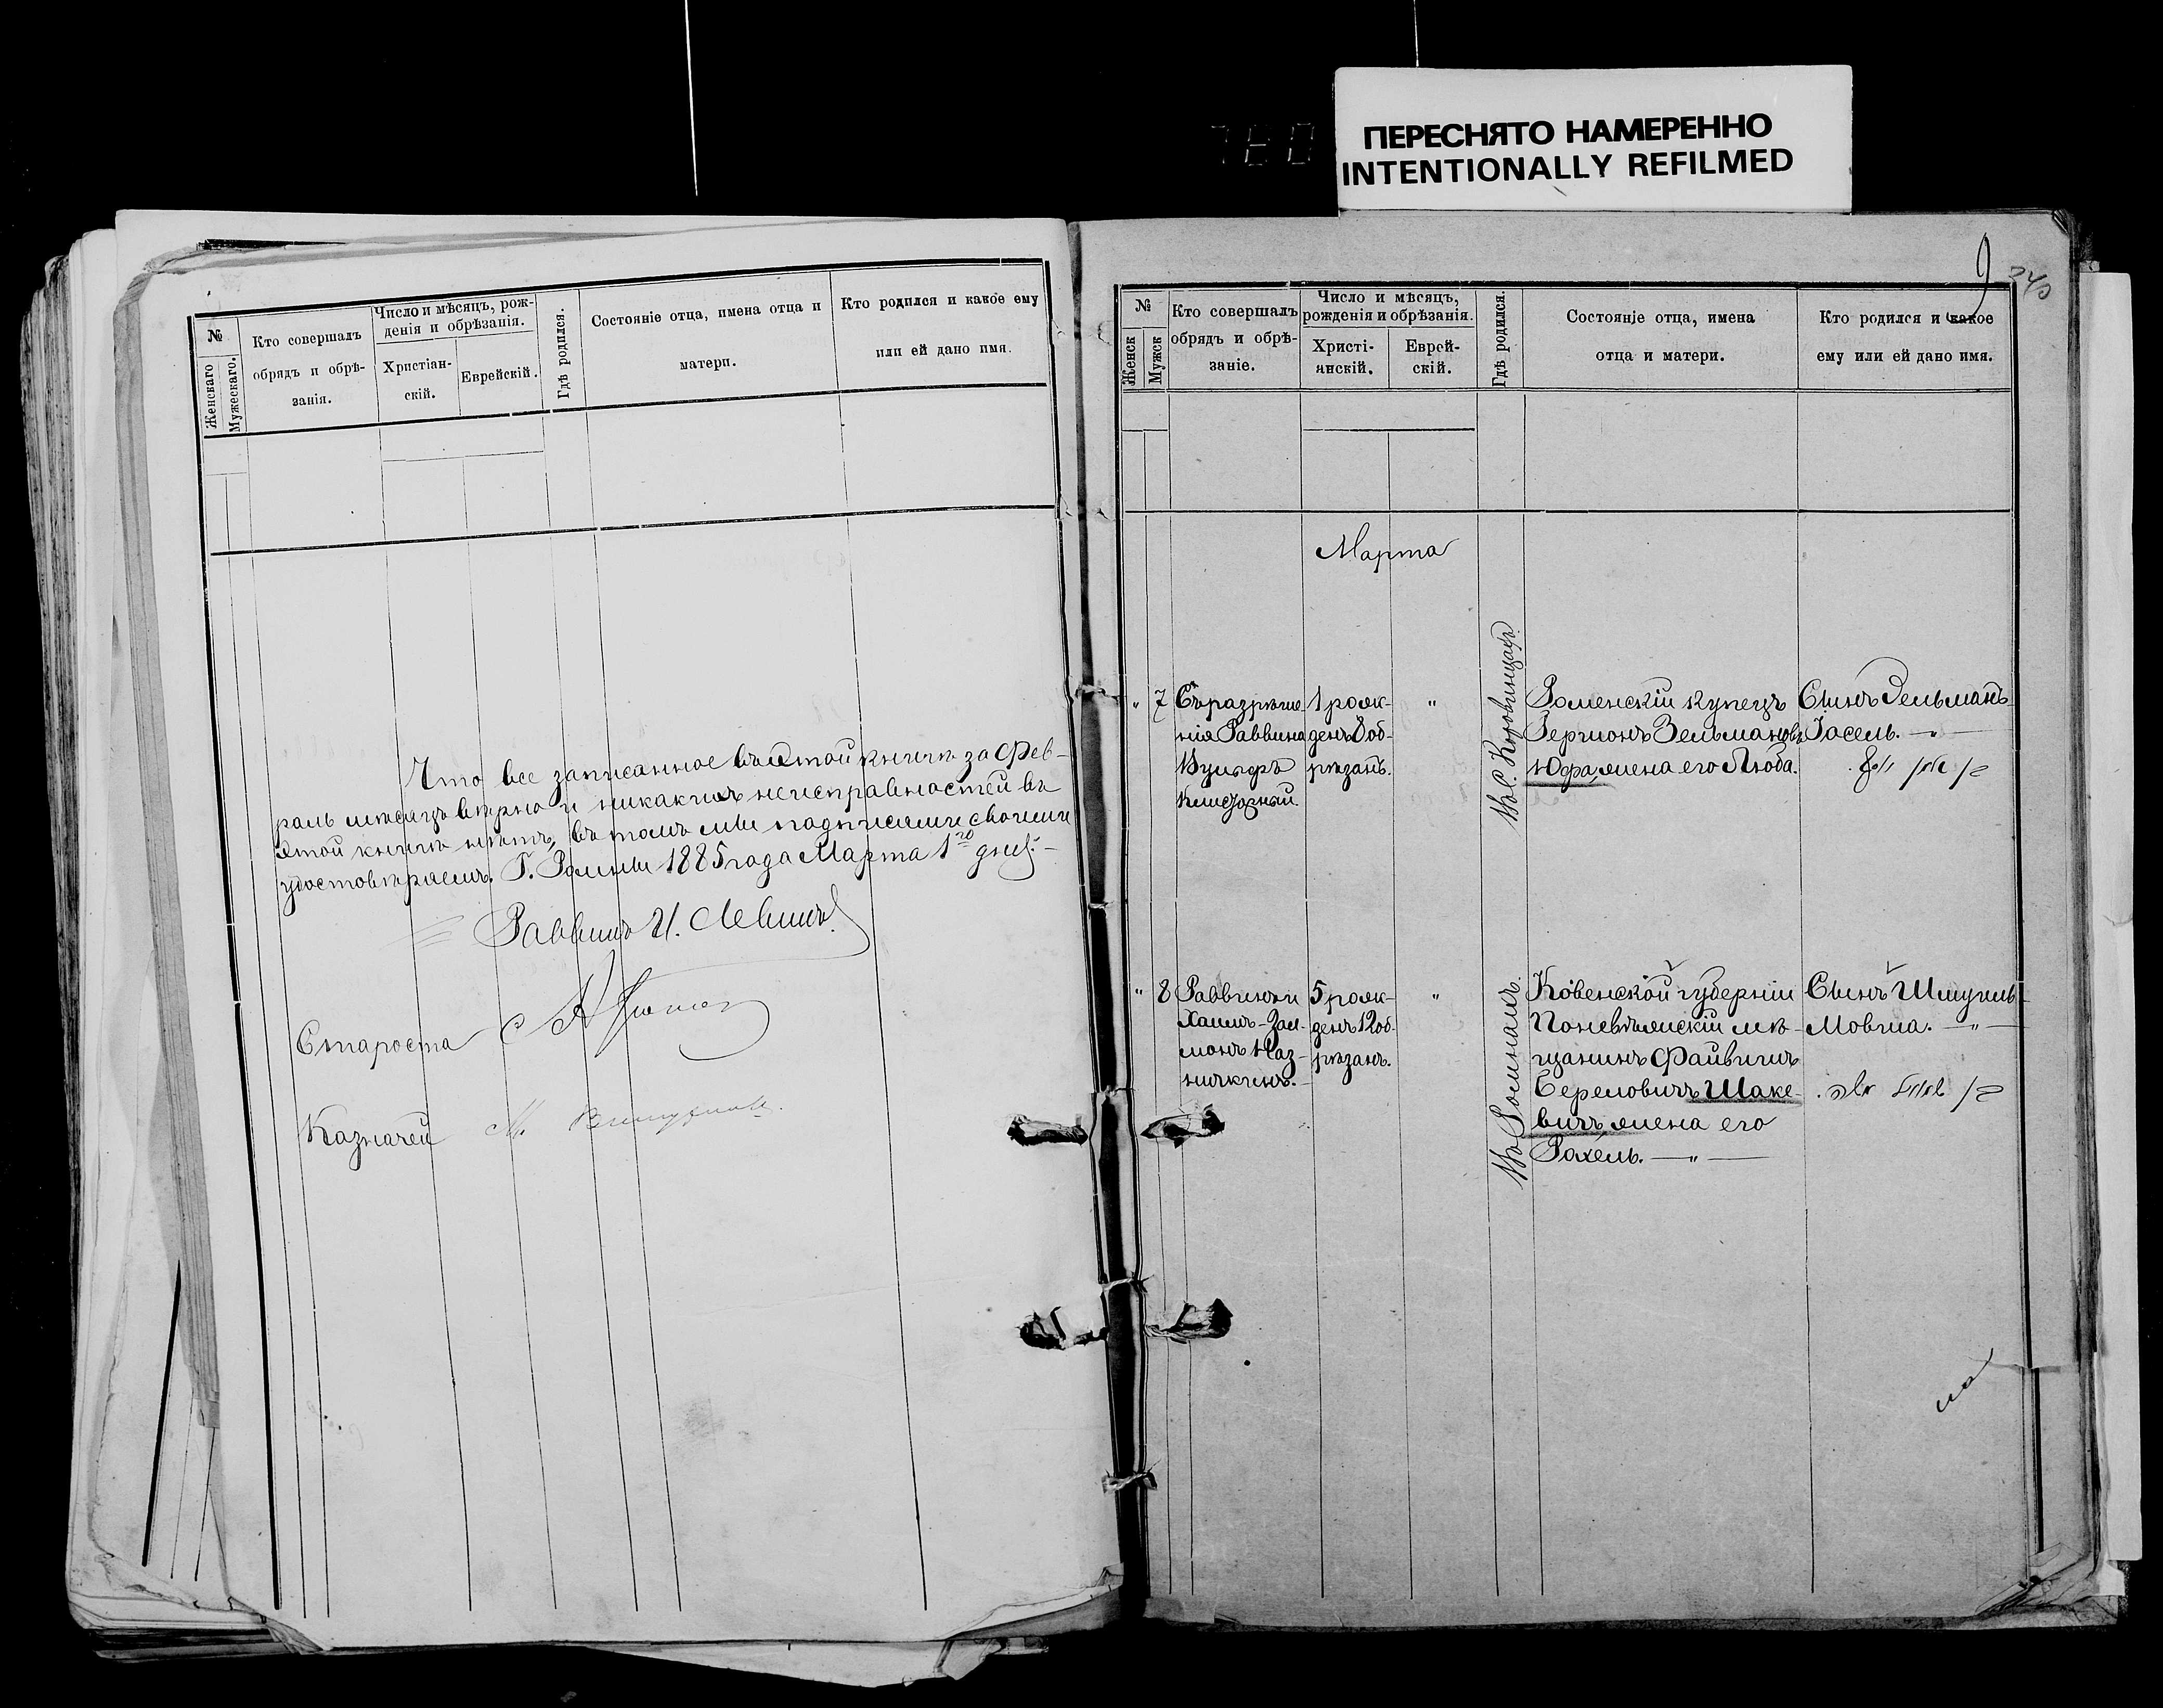 ПЕРЕСНЯТО НАМЕРЕННО
INTENTIONALLY REFILMED
№
Женскаго
Мужескаго.
Кто совершалъ
обрядъ и обрѣ-
занія.
Число и мѣсяцъ, рож-
денія и обрѣзанія.
Христіан-
скій.
Еврейскій.
Гдѣ родился.
Состояніе отца, имена отца и
матери.
Кто родился и какое ему
или ей дано имя.
Что все записанное въ этой книгѣ за Фев-
раль мѣсяцъ вѣрно и никакихъ неисправностей въ
этой книгѣ нѣтъ, въ томъ мы подписями своими
удостовѣряемъ. Г. Ромны 1885 года Марта 1го дня.
Раввинъ И. Левинъ
Староста
Казначей М.
9
№
Женск
Мужск
Кто совершалъ
обрядъ и обрѣ-
заніе.
Число и мѣсяцъ,
рожденія и обрѣзанія.
Христі-
анскій.
Еврей-
скій.
Гдѣ родился.
Состояніе отца, имена
отца и матери.
Кто родился и какое
ему или ей дано имя.
Марта
" 7
Съ разрѣше-
нія Раввина
1 рож-
денъ 8 об-
рѣзанъ.
"
Роменскій купецъ
Гершонъ Зельмановъ
Юфа, жена его Люба.
Сынъ Зельманъ-
Іосель. — " —
" 8
Раввинъ и
Хаимъ-Зал-
монъ Каз-
5 рож-
денъ 12 об-
рѣзанъ.
"
Въ Ромнахъ.
Ковенской губерніи
Поневѣжскій мѣ-
щанинъ Файвишъ
Беровичъ Шаке-
вичъ, жена его
Рахель. — " —
Сынъ Шмуиль-
Мовша. — " —